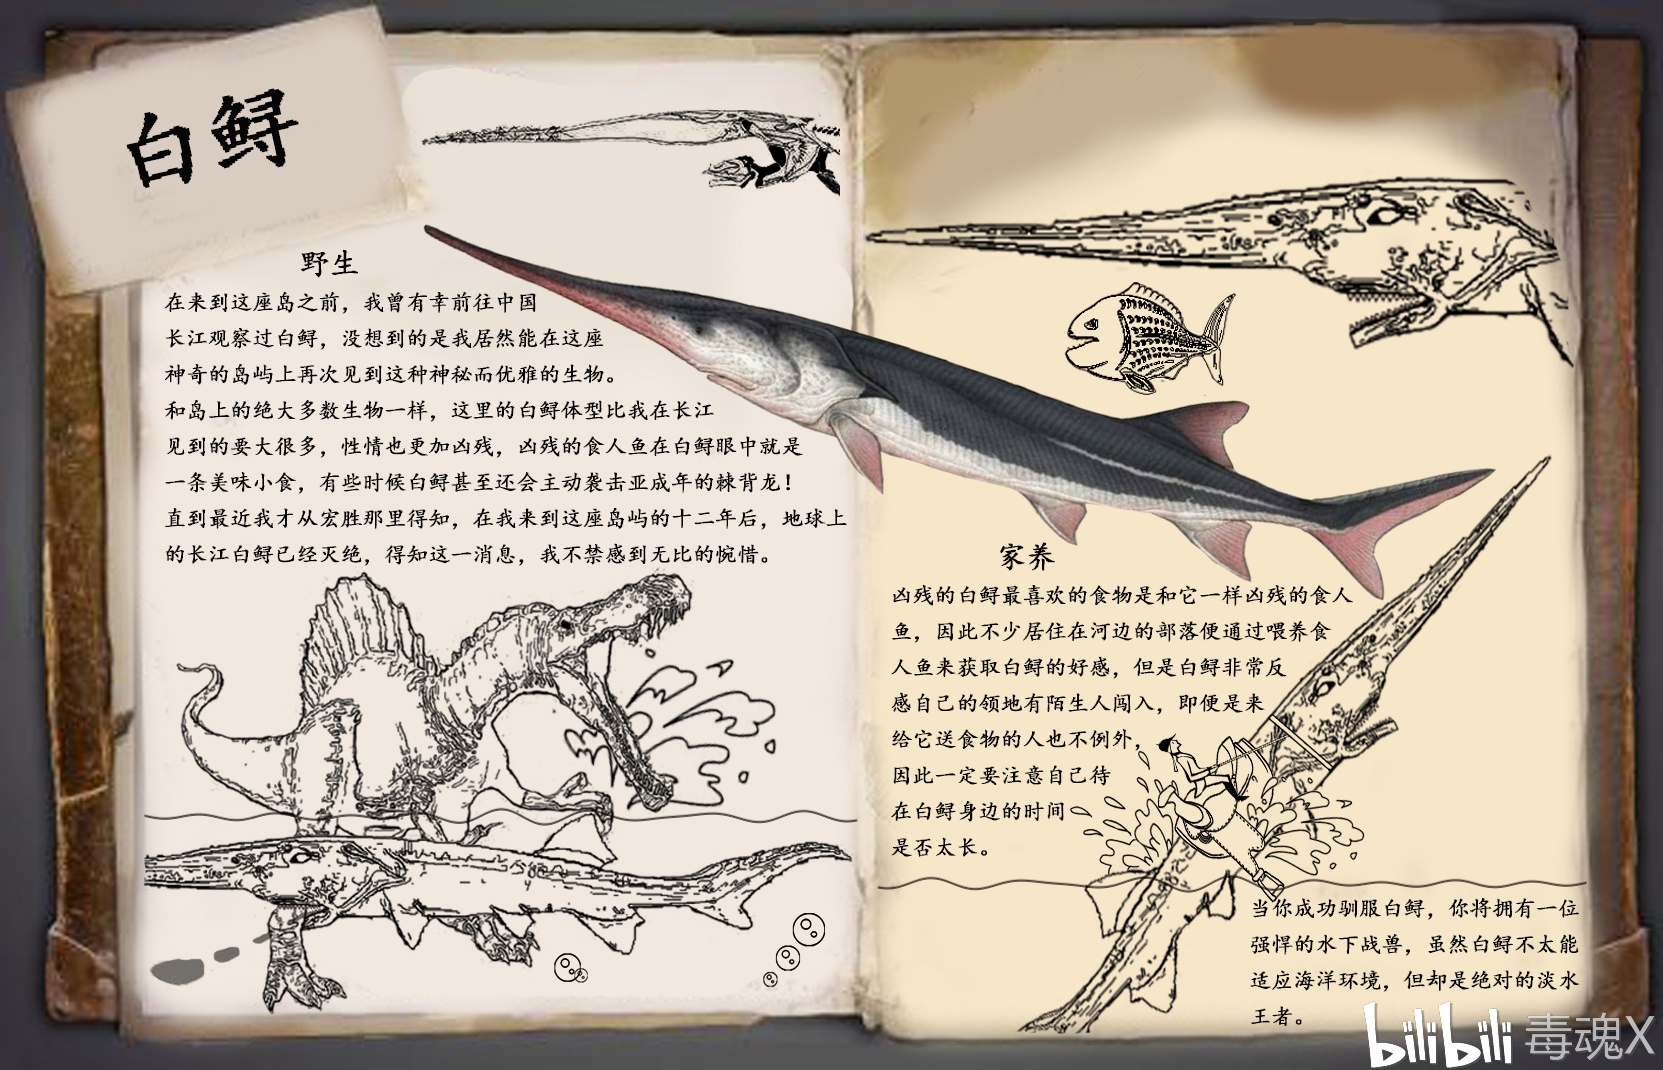 白鲟
野生
在来到这座岛之前，我曾有幸前往中国
长江观察过白鲟，没想到的是我居然能在这座
神奇的岛屿上再次见到这种神秘而优雅的生物。
和岛上的绝大多数生物一样，这里的白鲟体型比我在长江
见到的要大很多，性情也更加凶残，凶残的食人鱼在白鲟眼中就是
一条美味小食，有些时候白鲟甚至还会主动袭击亚成年的棘背龙！
直到最近我才从宏胜那里得知，在我来到这座岛屿的十二年后，地球上
的长江白鲟已经灭绝，得知这一消息，我不禁感到无比的惋惜。
家养
凶残的白鲟最喜欢的食物是和它一样凶残的食人
鱼，因此不少居住在河边的部落便通过喂养食
人鱼来获取白鲟的好感，但是白鲟非常反
感自己的领地有陌生人闯入，即便是来
给它送食物的人也不例外，
因此一定要注意自己待
在白鲟身边的时间
是否太长。
当你成功驯服白鲟，你将拥有一位
强悍的水下战兽，虽然白鲟不太能
适应海洋环境，但却是绝对的淡水
王者。
bilibili 毒魂X